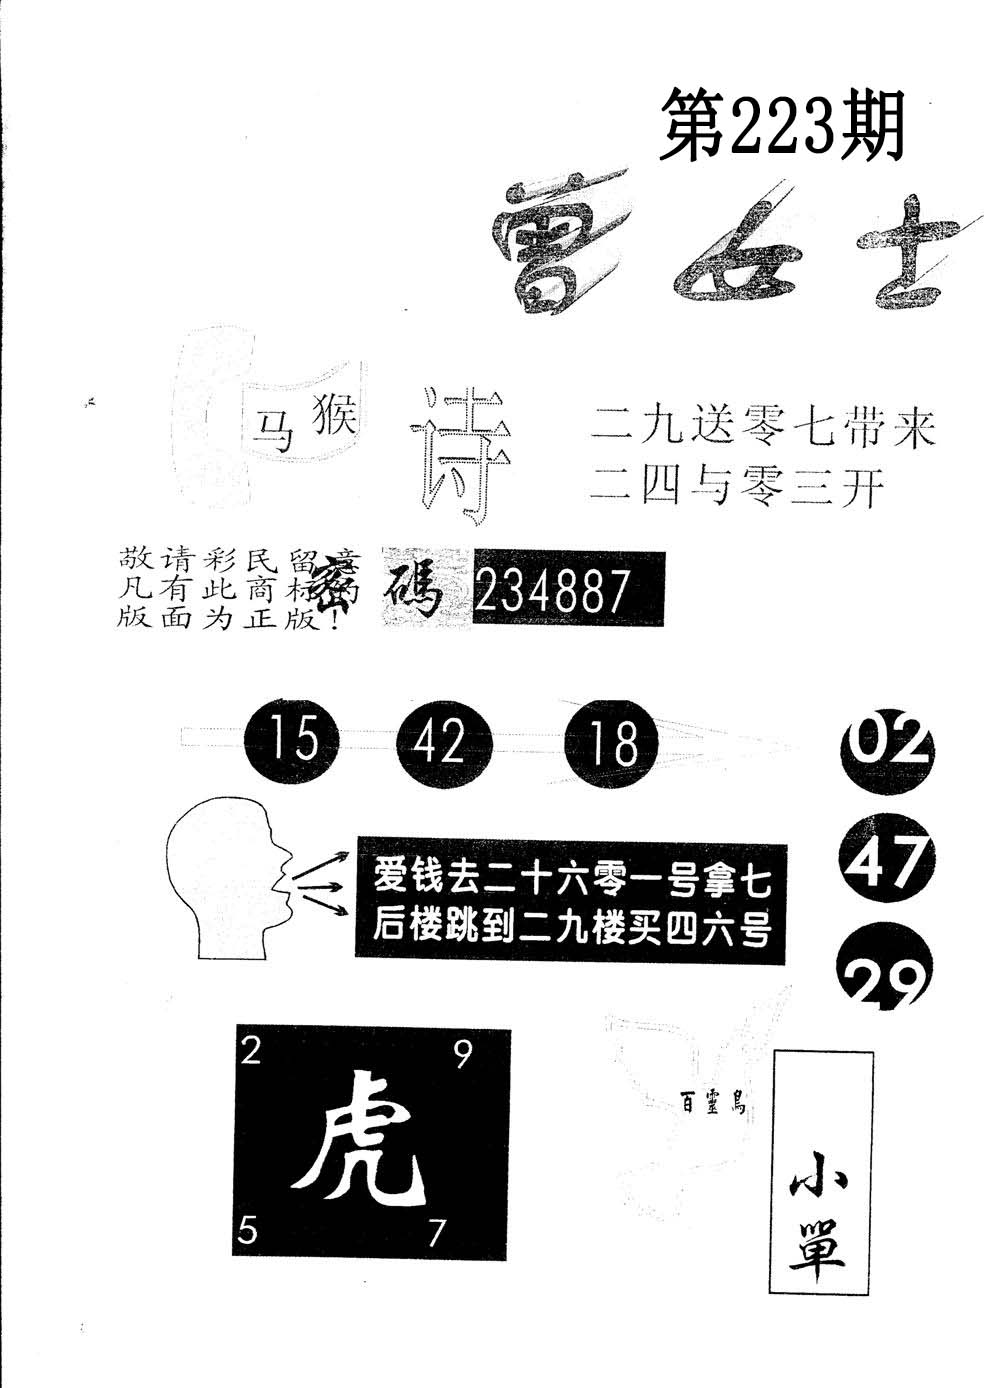 第223期
曾女士
马 猴
诗
二九送零七带来
二四与零三开
敬请彩民留意
凡有此商标的
版面为正版!
密碼
234887
15 42 18
02
47
29
爱钱去二十六零一号拿七
后楼跳到二九楼买四六号
2 9
虎
5 7
百靈鳥
小單